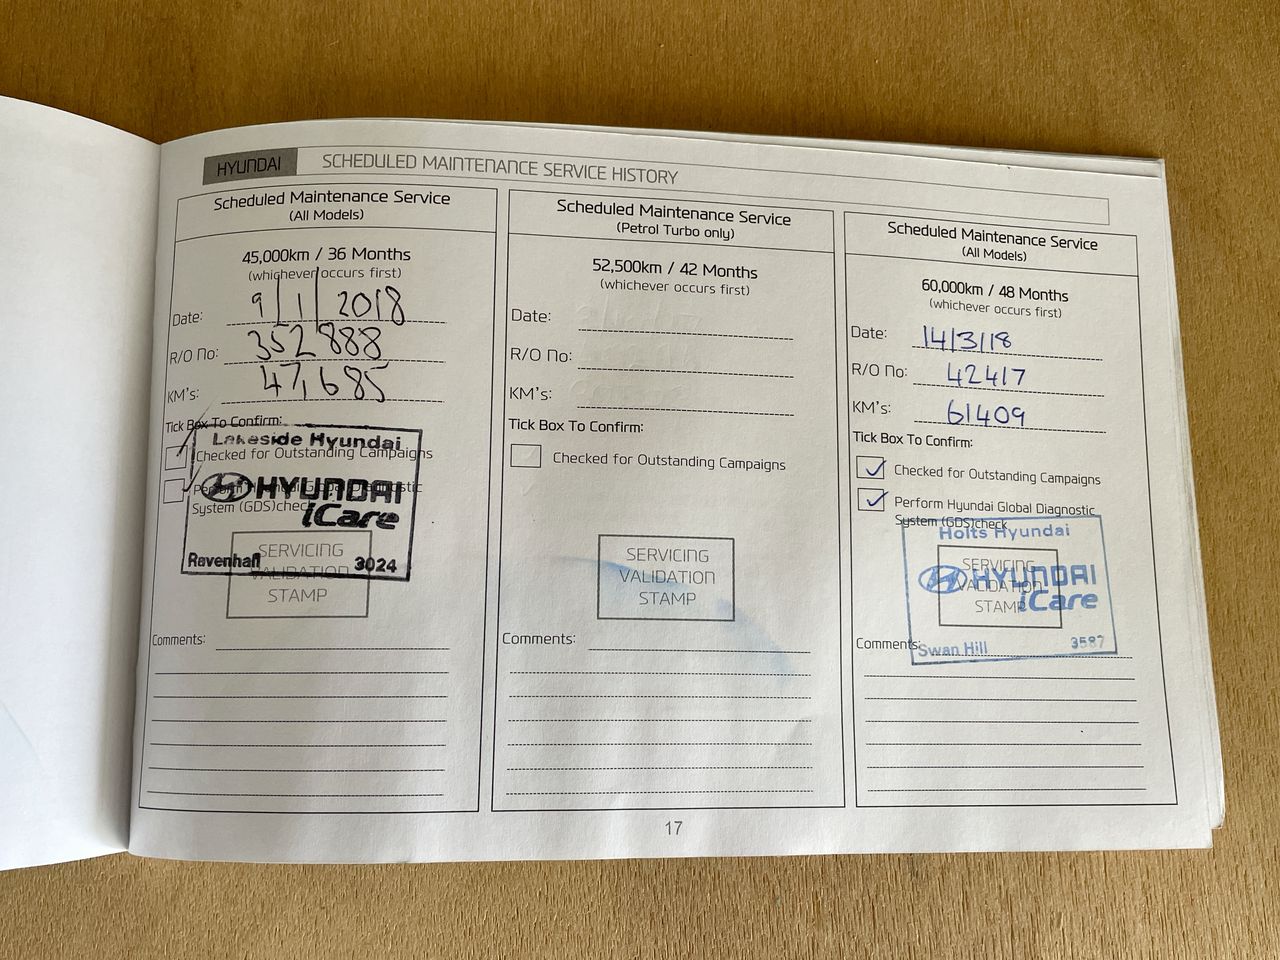 HYUNDAI SCHEDULED MAINTENANCE SERVICE HISTORY
Scheduled Maintenance Service
(All Models)
45,000km / 36 Months
(whichever occurs first)
Date: 9/1/2018
R/O No: 352888
KM's: 47,685
Tick Box To Confirm:
Checked for Outstanding Campaigns
Perform Hyundai Global Diagnostic
System (GDS)check
Lakeside Hyundai
HYUNDAI
iCare
Ravenhall 3024
SERVICING
VALIDATION
STAMP
Comments:
Scheduled Maintenance Service
(Petrol Turbo only)
52,500km / 42 Months
(whichever occurs first)
Date:
R/O No:
KM's:
Tick Box To Confirm:
Checked for Outstanding Campaigns
SERVICING
VALIDATION
STAMP
Comments:
Scheduled Maintenance Service
(All Models)
60,000km / 48 Months
(whichever occurs first)
Date: 14/3/18
R/O No: 42417
KM's: 61409
Tick Box To Confirm:
Checked for Outstanding Campaigns
Perform Hyundai Global Diagnostic
System (GDS)check
Holts Hyundai
HYUNDAI
iCare
Swan Hill 3587
SERVICING
VALIDATION
STAMP
Comments:
17